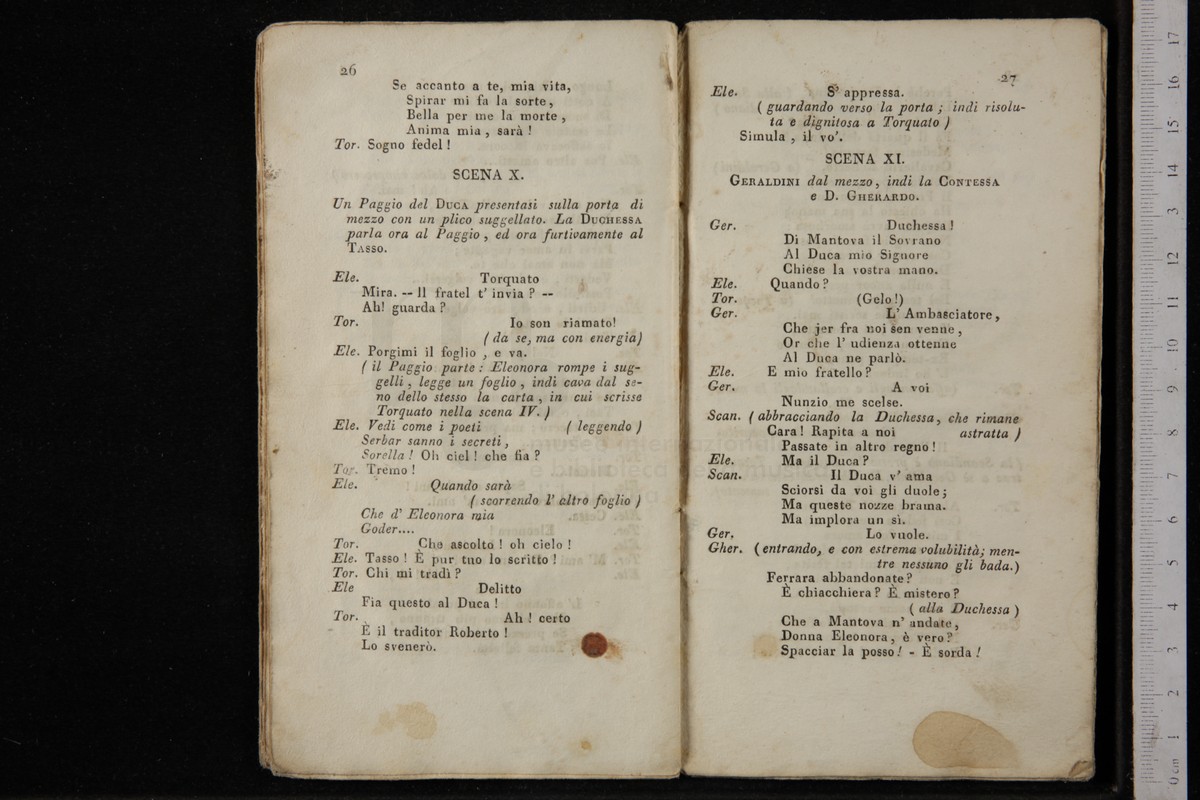 26
Se accanto a te, mia vita,
Spirar mi fa la sorte,
Bella per me la morte,
Anima mia, sarà !
Tor. Sogno fedel !
SCENA X.
Un Paggio del DUCA presentasi sulla porta di
mezzo con un plico suggellato. La DUCHESSA
parla ora al Paggio, ed ora furtivamente al
TASSO.
Ele. Torquato
Mira. -- Il fratel t' invia ? --
Ah! guarda ?
Tor. Io son riamato!
( da se, ma con energia)
Ele. Porgimi il foglio, e va.
( il Paggio parte : Eleonora rompe i sug-
gelli, legge un foglio, indi cava dal se-
no dello stesso la carta, in cui scrisse
Torquato nella scena IV. )
Ele. Vedi come i poeti ( leggendo )
Serbar sanno i secreti,
Sorella ! Oh ciel ! che fia ?
Tor. Tremo !
Ele. Quando sarà
( scorrendo l' altro foglio )
Che d' Eleonora mia
Goder....
Tor. Che ascolto ! oh cielo !
Ele. Tasso ! È pur tuo lo scritto !
Tor. Chi mi tradì ?
Ele Delitto
Fia questo al Duca !
Tor. Ah ! certo
È il traditor Roberto !
Lo svenerò.
27
Ele. S' appressa.
( guardando verso la porta ; indi risolu-
ta e dignitosa a Torquato )
Simula, il vo'.
SCENA XI.
GERALDINI dal mezzo, indi la CONTESSA
e D. GHERARDO.
Ger. Duchessa !
Di Mantova il Sovrano
Al Duca mio Signore
Chiese la vostra mano.
Ele. Quando ?
Tor. (Gelo !)
Ger. L' Ambasciatore,
Che jer fra noi sen venne,
Or che l' udienza ottenne
Al Duca ne parlò.
Ele. E mio fratello ?
Ger. A voi
Nunzio me scelse.
Scan. ( abbracciando la Duchessa, che rimane
Cara ! Rapita a noi astratta )
Passate in altro regno !
Ele. Ma il Duca ?
Scan. Il Duca v' ama
Sciorsi da voi gli duole;
Ma queste nozze brama.
Ma implora un sì.
Ger. Lo vuole.
Gher. (entrando, e con estrema volubilità; men-
tre nessuno gli bada.)
Ferrara abbandonate ?
È chiacchiera ? È mistero ?
( alla Duchessa )
Che a Mantova n' andate,
Donna Eleonora, è vero ?
Spacciar la posso ! - È sorda !